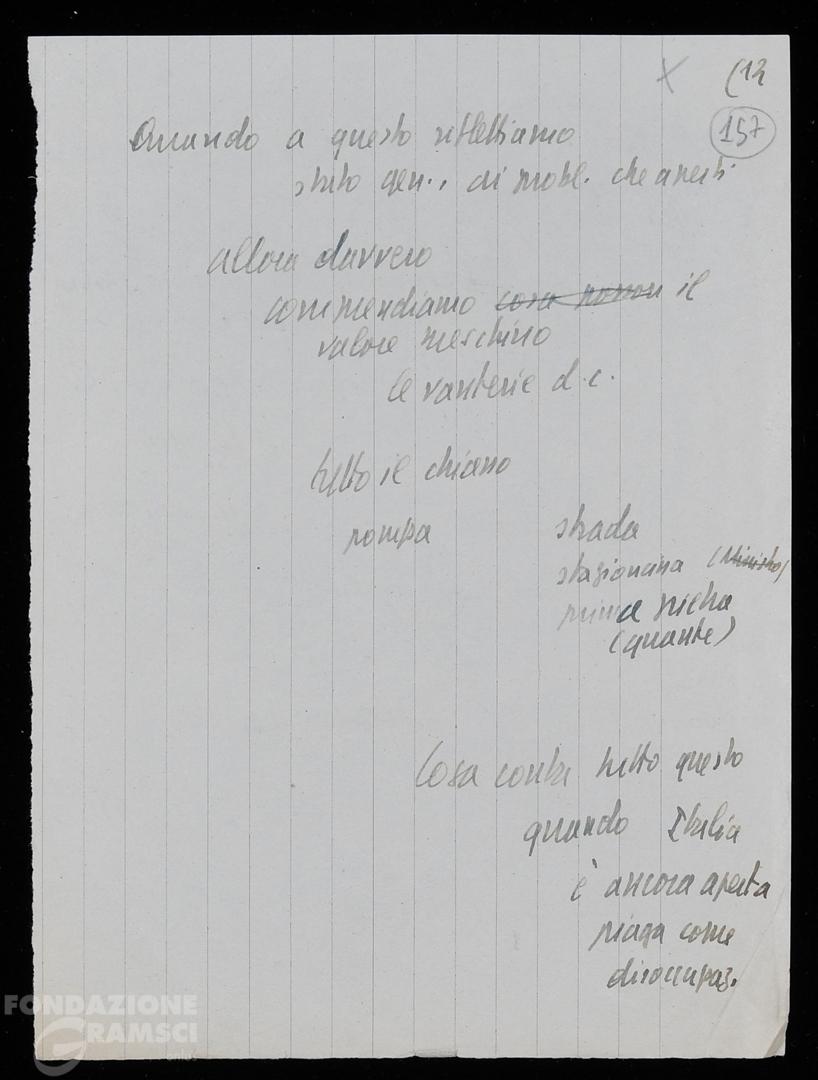 X (12
157
Quando a questo riflettiamo
stato gen., di mobl. che aperti
allora davvero
comprendiamo cosa il
valore meschino
le vanterie d.c.
tutto il chiasso
pompa
strada
stazioncina (Ministro)
prima pietra
(quante)
Cosa conta tutto questo
quando Italia
è ancora aperta
piaga come
disoccupaz.
FONDAZIONE
GRAMSCI